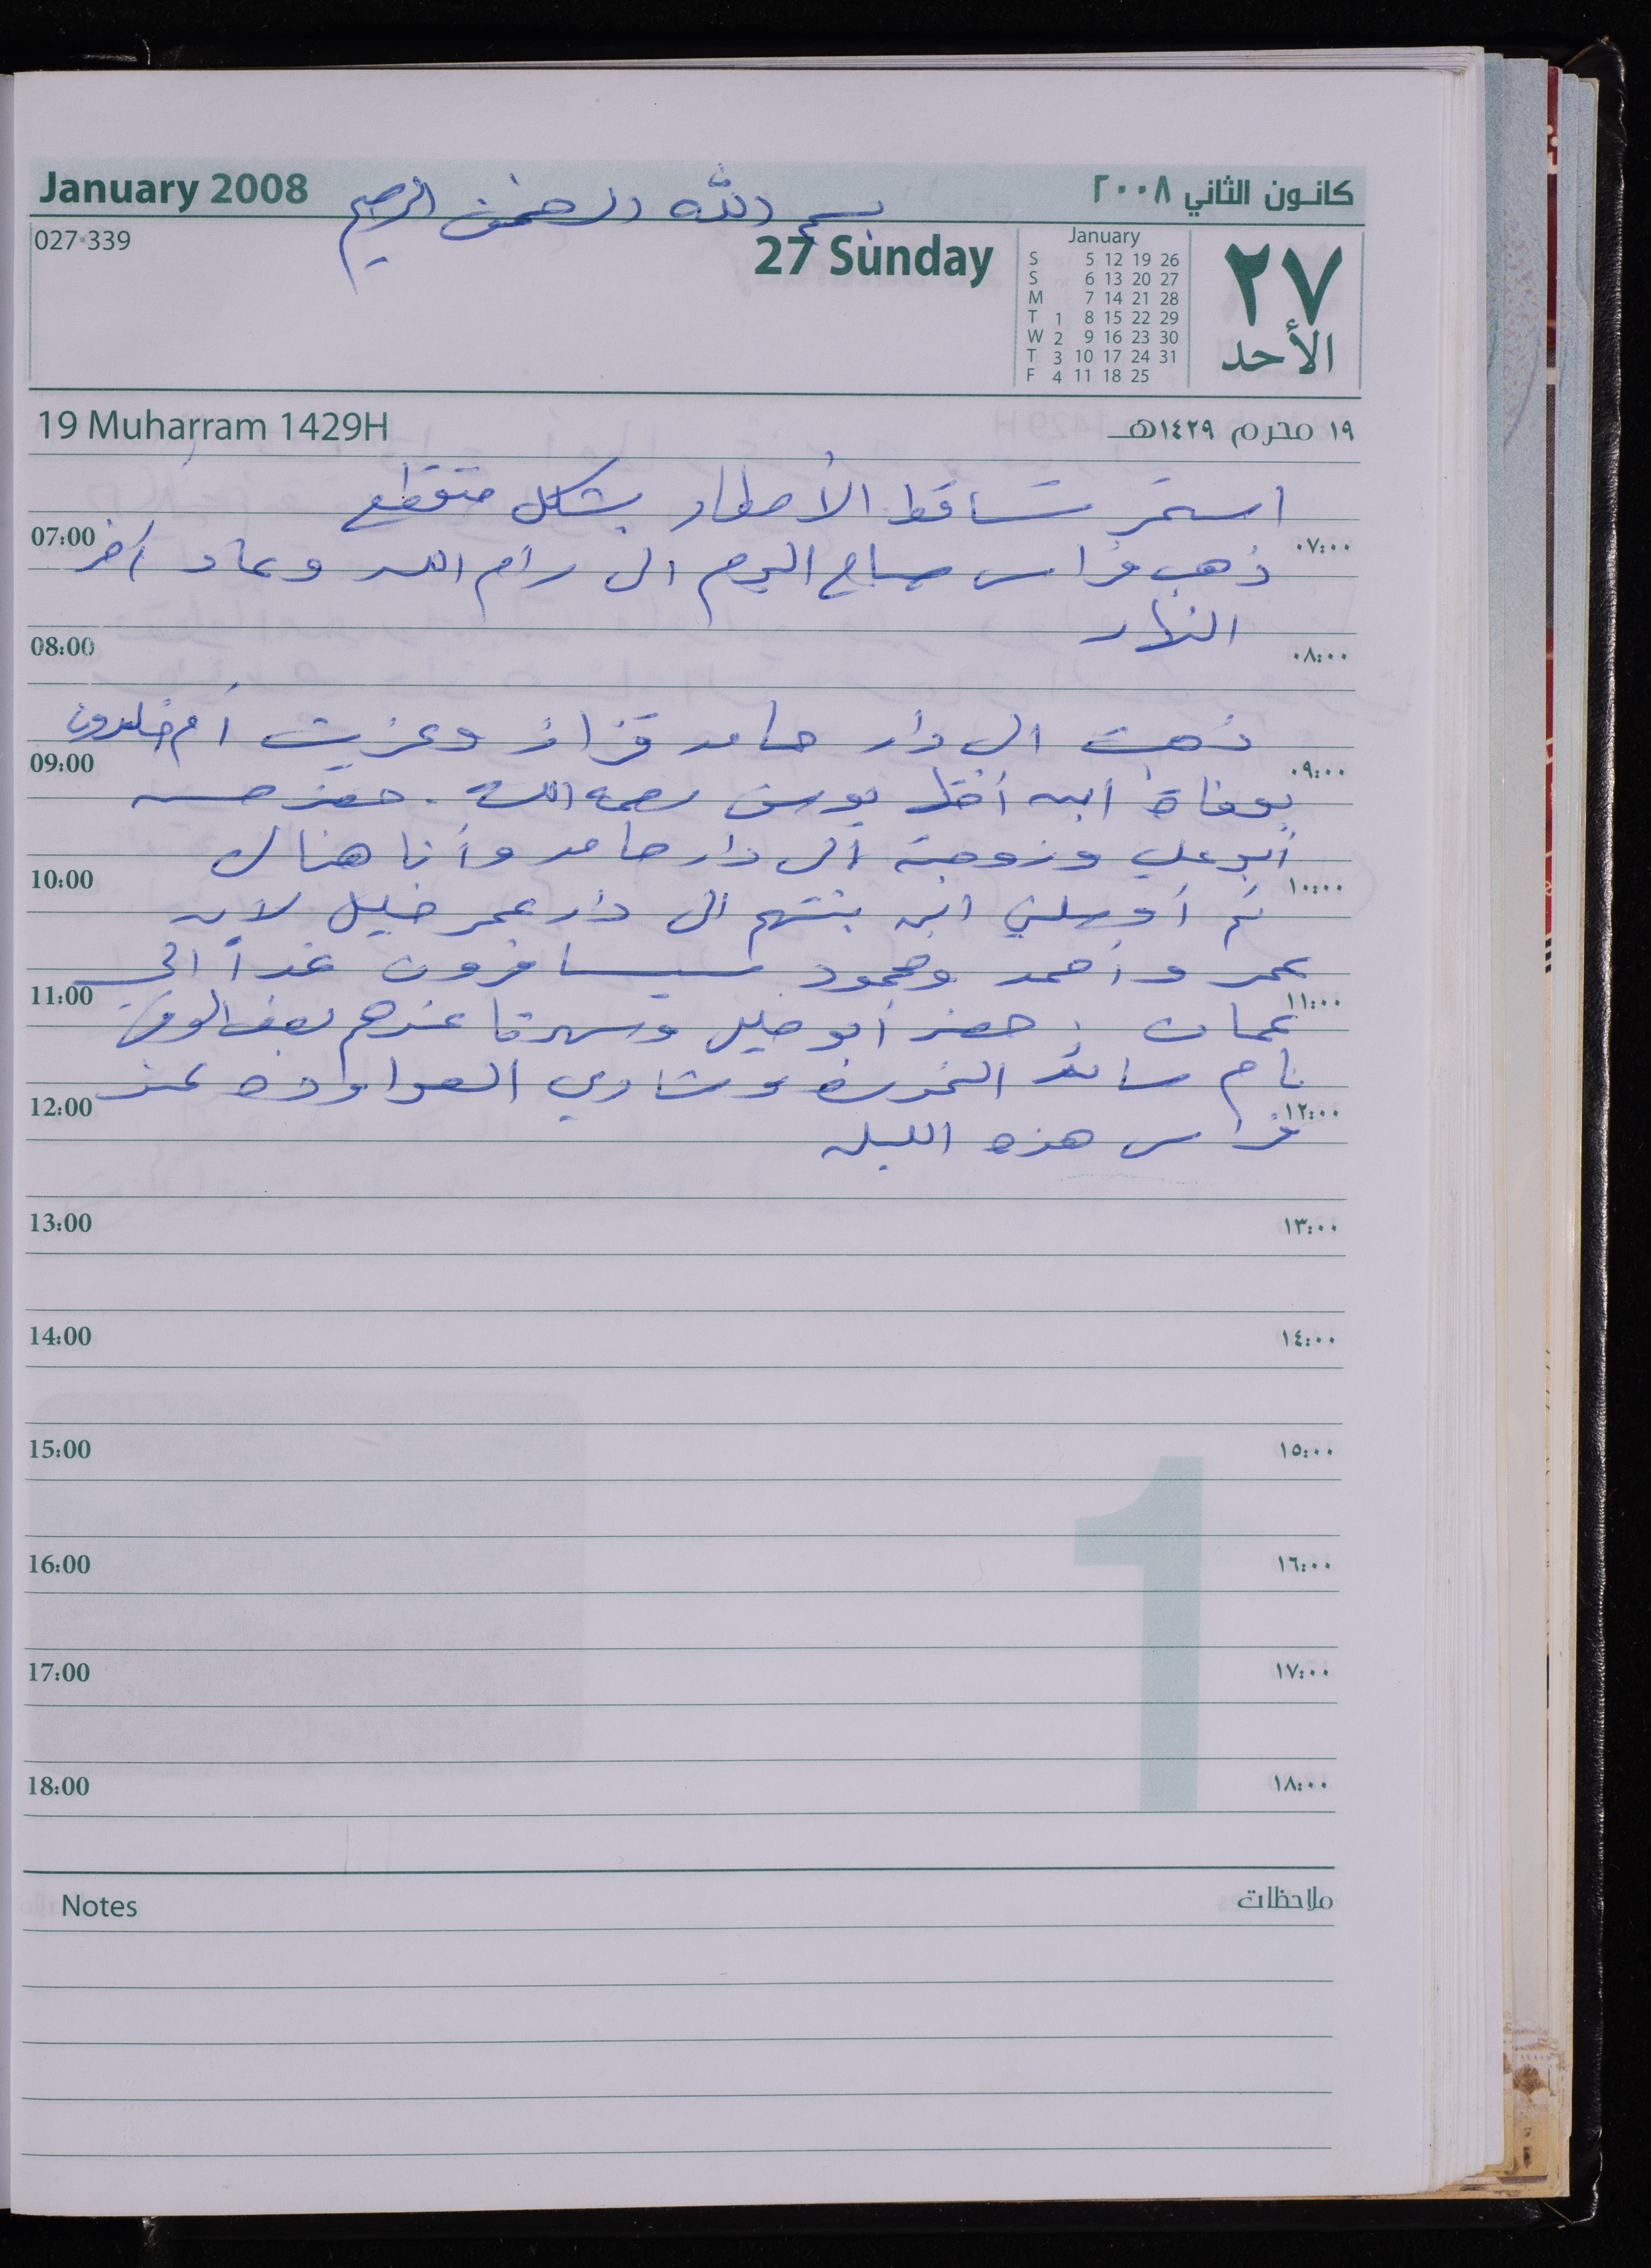 January 2008 بسم الله الرحمن الرحيم كانون الثاني ٢٠٠٨
027-339 27 Sunday
January
S 5 12 19 26
S 6 13 20 27
M 7 14 21 28
T 1 8 15 22 29
W 2 9 16 23 30
T 3 10 17 24 31
F 4 11 18 25
٢٧
الأحد
19 Muharram 1429H ١٩ محرم ١٤٢٩هـ
استمر تساقط الأمطار بشكل متقطع
07:00 ٠٧:٠٠
ذهب فراس صباح اليوم الى رام الله وعاد آخر
النهار
08:00 ٠٨:٠٠
ذهبت الى دار حامد قزاز وعزيت أم خلدون
09:00 ٠٩:٠٠
بوفاة ابن أختها يوسف رحمه الله . حضر
أبو علي وزوجته الى دار حامد وأنا هناك
10:00 ١٠:٠٠
ثم أوصلني ابن بنتهم الى دار عمر خليل لأن
عمر وأحمد ومحمود سيسافرون غداً الى
11:00 ١١:٠٠
عمان . حضر أبو خليل وسهرنا عندهم بعض الوقت
نام سائد وشادي العواوده عند
12:00 ١٢:٠٠
فراس هذه الليلة
13:00 ١٣:٠٠
14:00 ١٤:٠٠
15:00 ١٥:٠٠
16:00 ١٦:٠٠
17:00 ١٧:٠٠
18:00 ١٨:٠٠
1
Notes ملاحظات